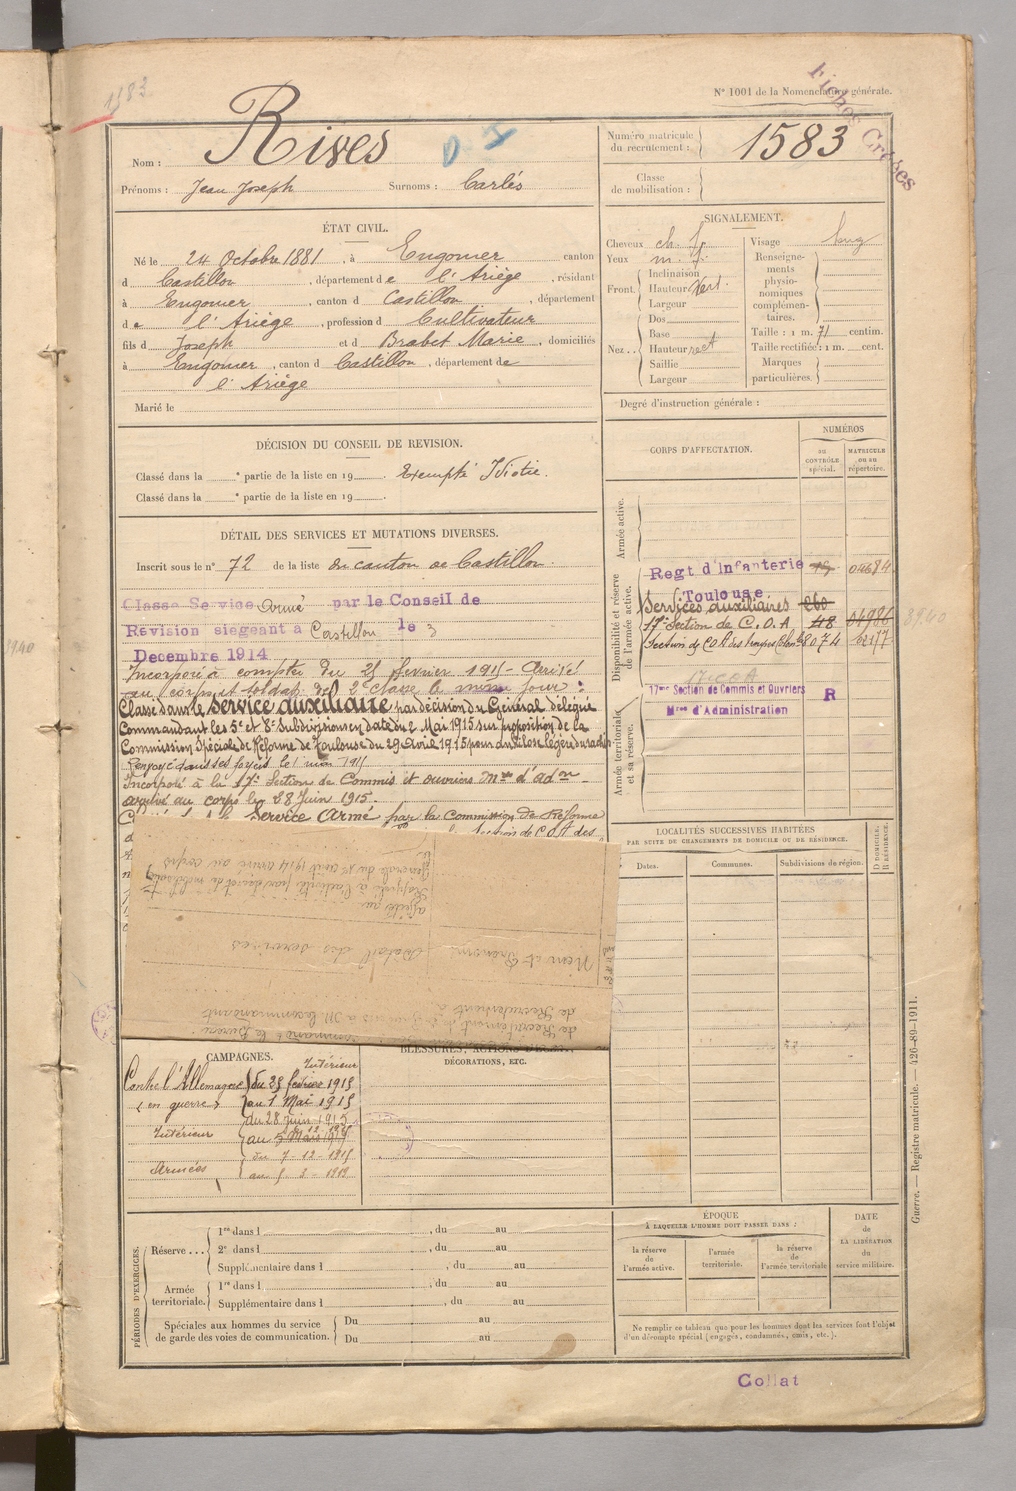 1583
N° 1001 de la Nomenclature générale.
Fiches Créees
Nom : Rives
Prénoms : Jean Joseph Surnoms : Carlés
Numéro matricule du recrutement : 1583
Classe de mobilisation :
ÉTAT CIVIL.
Né le 24 Octobre 1881, à Engomer canton
d Castillon, département de l'Ariège, résidant
à Engomer, canton d Castillon, département
de l'Ariège, profession d Cultivateur
fils d Joseph et d Brabet Marie, domiciliés
à Engomer, canton d Castillon, département de
l'Ariège
Marié le
SIGNALEMENT.
Cheveux ch. Visage long
Yeux m.
Renseignements physionomiques complémentaires.
Front. Inclinaison
Hauteur Vert.
Largeur
Nez.. Dos
Base
Hauteur rect
Saillie
Largeur
Taille : 1 m. 71 centim.
Taille rectifiée : 1 m. cent.
Marques particulières.
Degré d'instruction générale :
DÉCISION DU CONSEIL DE REVISION.
Classé dans la e partie de la liste en 19 . Exempté Idiotie.
Classé dans la e partie de la liste en 19 .
DÉTAIL DES SERVICES ET MUTATIONS DIVERSES.
Inscrit sous le n° 72 de la liste du canton de Castillon.
Classe Service Armé par le Conseil de
Révision siégeant à Castillon le 3
Decembre 1914
Incorporé à compter du 25 février 1915 - Arrivé
au corps et soldat de 2e classe le même jour :
Classé dans le service auxiliaire par décision du Général délégué
Commandant les 5e et 8e Subdivisions en date du 2 Mai 1915 sur proposition de la
Commission Spéciale de Réforme de Toulouse du 29 Avril 1915 pour ankilose légère du rachis
Renvoyé dans ses foyers le 1 mai 1915
Incorporé à la 17e Section de Commis et ouvriers mres d'adon
arrivé au corps le 28 Juin 1915.
Service Armé par la Commission de Réforme
Section de C.O.A des
CORPS D'AFFECTATION.
NUMÉROS
au CONTRÔLE spécial.
MATRICULE ou au répertoire.
Armée active.
Disponibilité et réserve de l'armée active.
Regt d'Infanterie 04684
Toulouse
Services auxiliaires 260
17e Section de C.O.A 48 04986 3940
Section de C.O.A des troupes Colon. 8074 62177
17e COA
Armée territoriale et sa réserve.
17me Section de Commis et Ouvriers R
Mres d'Administration
3940
LOCALITÉS SUCCESSIVES HABITÉES
PAR SUITE DE CHANGEMENTS DE DOMICILE OU DE RÉSIDENCE.
Dates. Communes. Subdivisions de région.
D DOMICILE.
R RÉSIDENCE.
de Recrutement à M. le commandant
de Recrutement
Nom et Prénoms
Détail des services
Rappelé à l'activité par décret de mobilisation
générale du 1er août 1914 arrivé au corps
le
CAMPAGNES.
Contre l'Allemagne Intérieur
(en guerre) du 25 février 1915
au 1 Mai 1915
Intérieur du 28 juin 1915
au
Armées du 7 - 12 - 1915
BLESSURES, ACTIONS D'ÉCLAT,
DÉCORATIONS, ETC.
PÉRIODES D'EXERCICES.
Réserve ... 1re dans l , du au
2e dans l , du au
Supplémentaire dans l , du au
Armée territoriale. 1re dans l , du au
Supplémentaire dans l , du au
Spéciales aux hommes du service de garde des voies de communication. Du au
Du au
ÉPOQUE
À LAQUELLE L'HOMME DOIT PASSER DANS :
la réserve de l'armée active.
l'armée territoriale.
la réserve de l'armée territoriale
DATE de LA LIBÉRATION du service militaire.
Ne remplir ce tableau que pour les hommes dont les services font l'objet
d'un décompte spécial (engagés, condamnés, omis, etc.).
Guerre. — Registre matricule. — 426-89-1911.
Collat